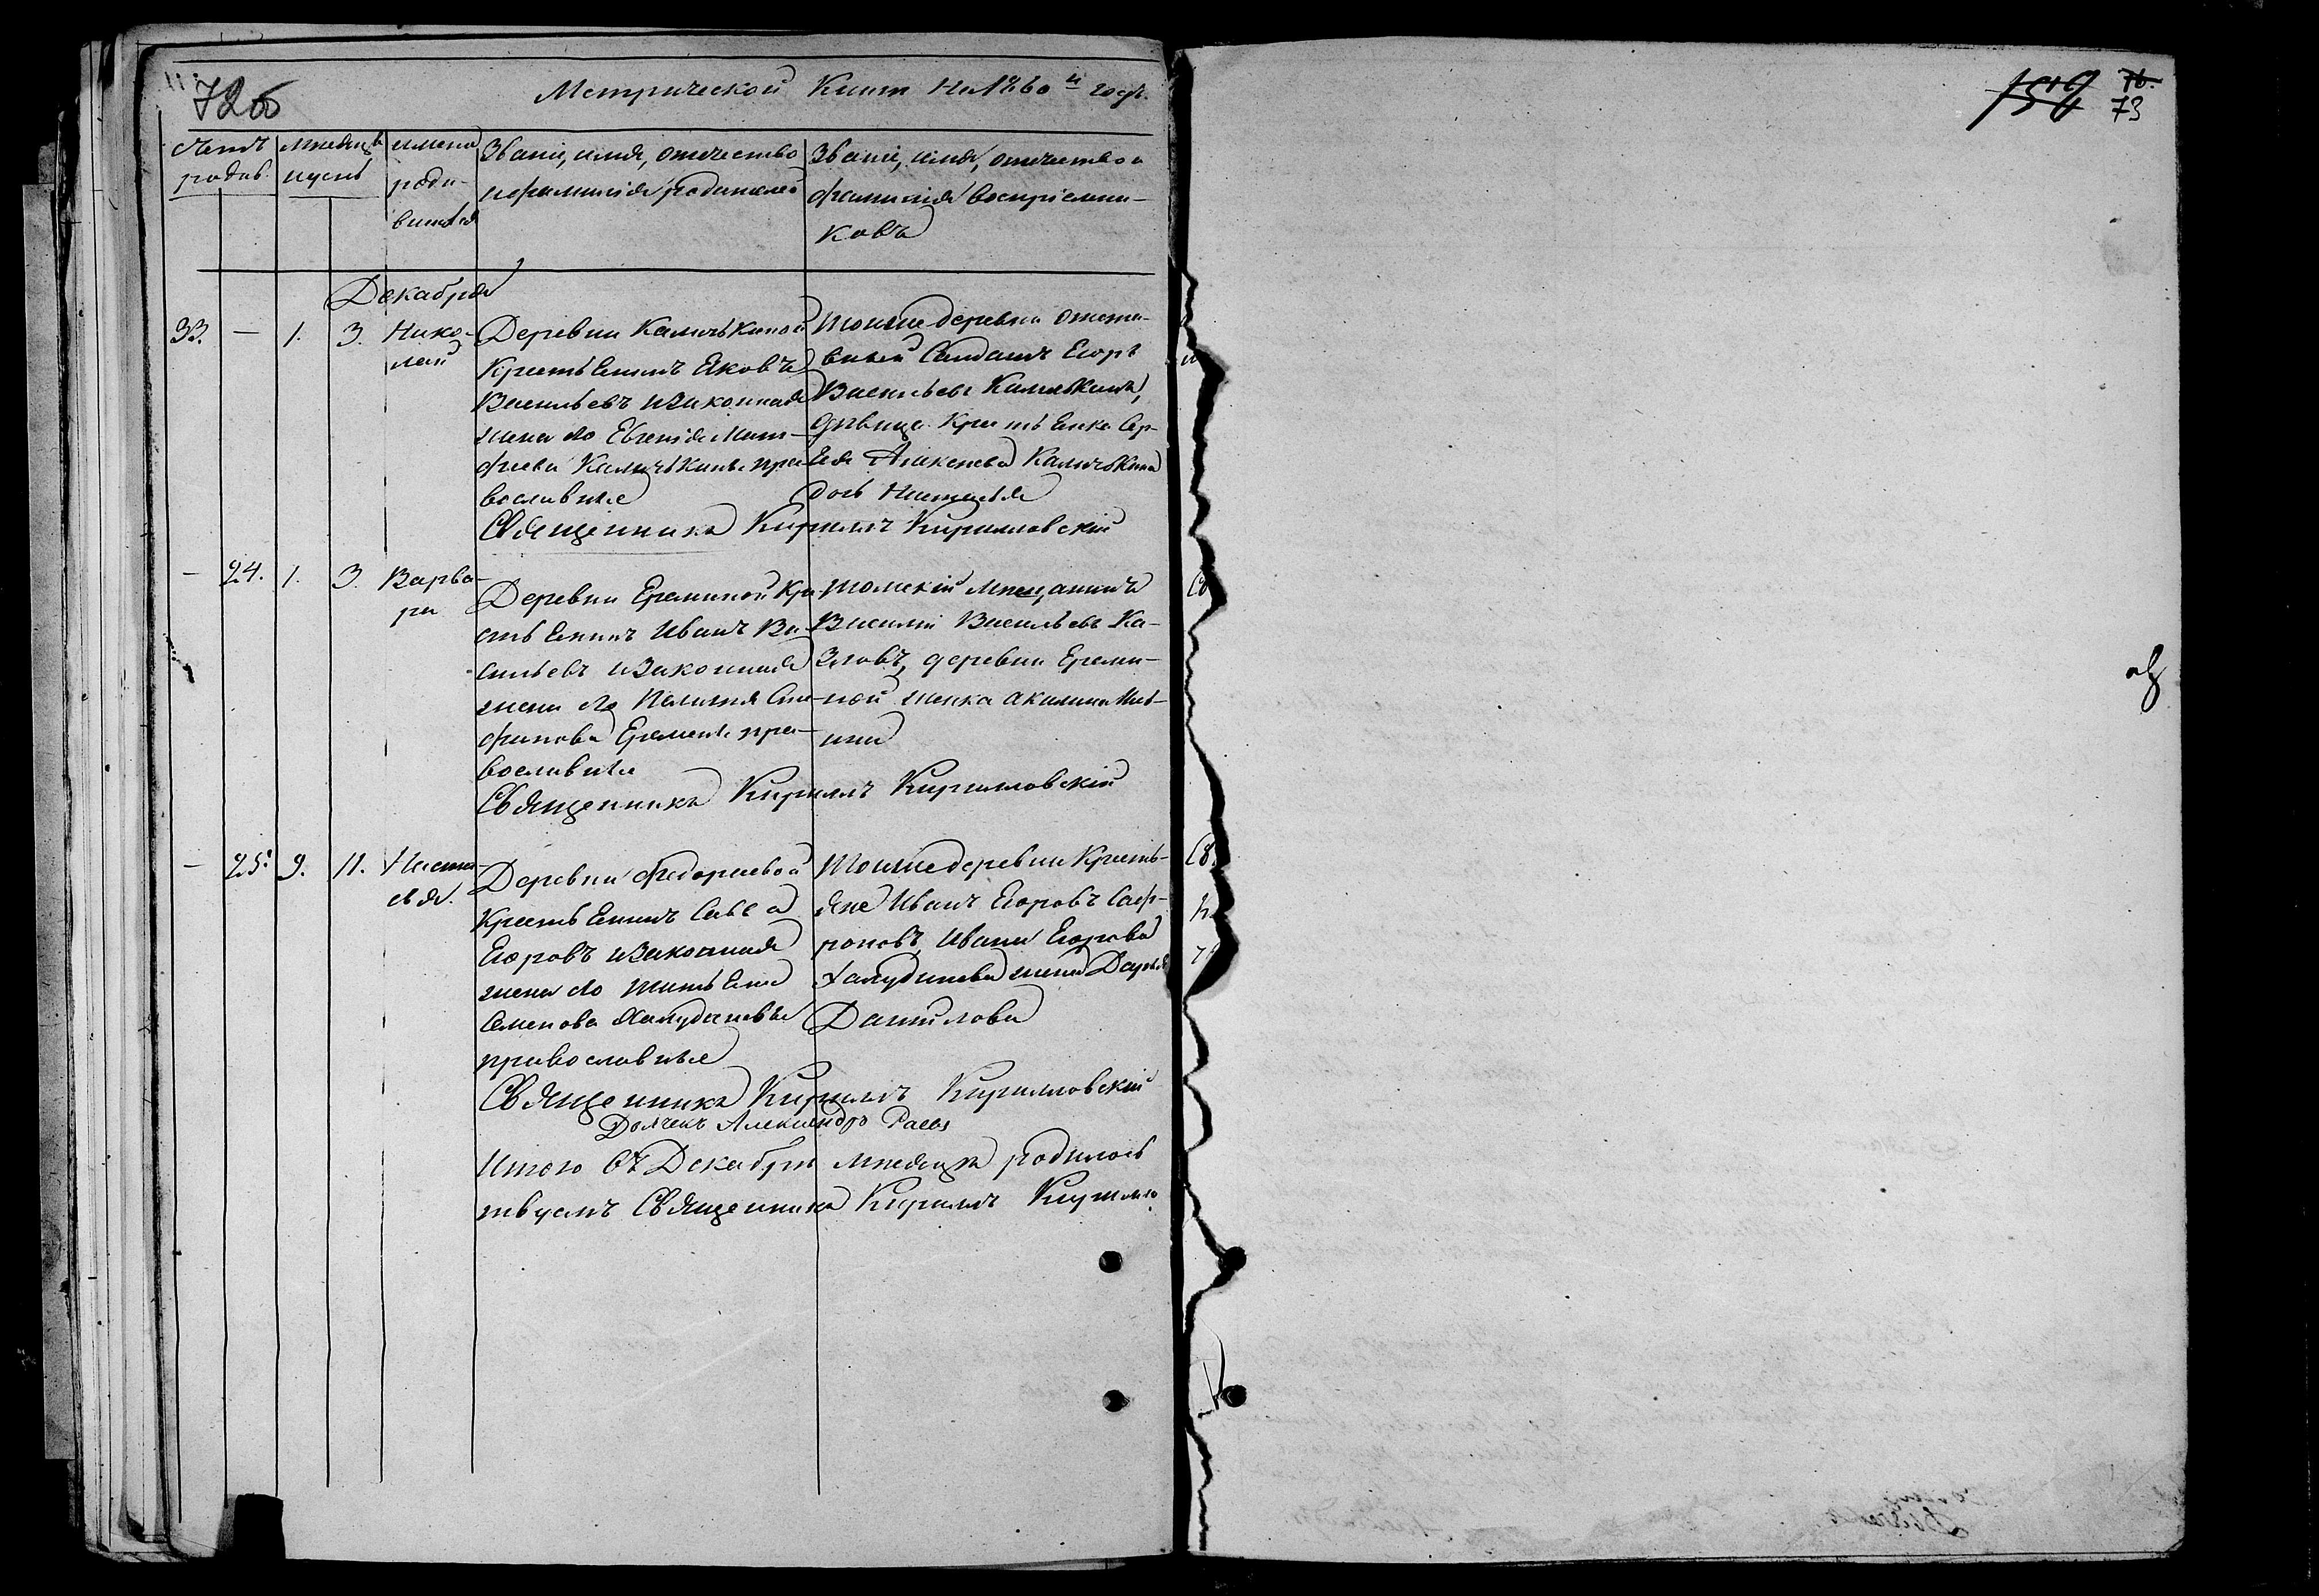 72об
Метрической Книги На 1860й годъ.
Счетъ родив.
Месяцъ и день
имена роди-
вшихся
Званіе, имя, отчество
и фамилія родителей
Званіе, имя, отчество и
фамилія воспріемни-
ковъ
Декабря
33. — 1. 3. Нико-
лай
Деревни Калитькиной
Крестьенинъ Яковъ
Васильевъ и Законная
жена его Евгенія
Калитькины пра
вославные
Тойже деревни отста-
вный Солдатъ Егоръ
Васильевъ Калитькинъ,
девица Крестьенка Сер-
Калитькина
дочь Наталья
Священникъ Кириллъ Кирилловскій
— 24. 1. 3. Варва-
ра
Деревни Ереминой Кре
стьенинъ Иванъ Ва-
сильевъ и Законная
жена его Пелагия Сте-
фанова Еремины пра-
вославные
Томскій Мещанинъ
Василий Васильевъ Ка-
зловъ, деревни Ереми-
ной женка Акилина
Священникъ Кириллъ Кирилловскій
— 25. 9. 11. Наста-
сья.
Деревни Федораевой
Крестьенинъ Савва
Егоровъ и Законная
жена его Татьена
Семенова Халудыневы
православные
Тойже деревни Кресть-
яне Иванъ Егоровъ Саф-
роновъ, Ивана Егорова
Халудынева жена Дарья
Данилова
Священникъ Кириллъ Кирилловскій
Дьячекъ Александръ Раевъ
Итого въ Декабре месяце родилось
Священникъ Кириллъ Кирилло
154 76.
73